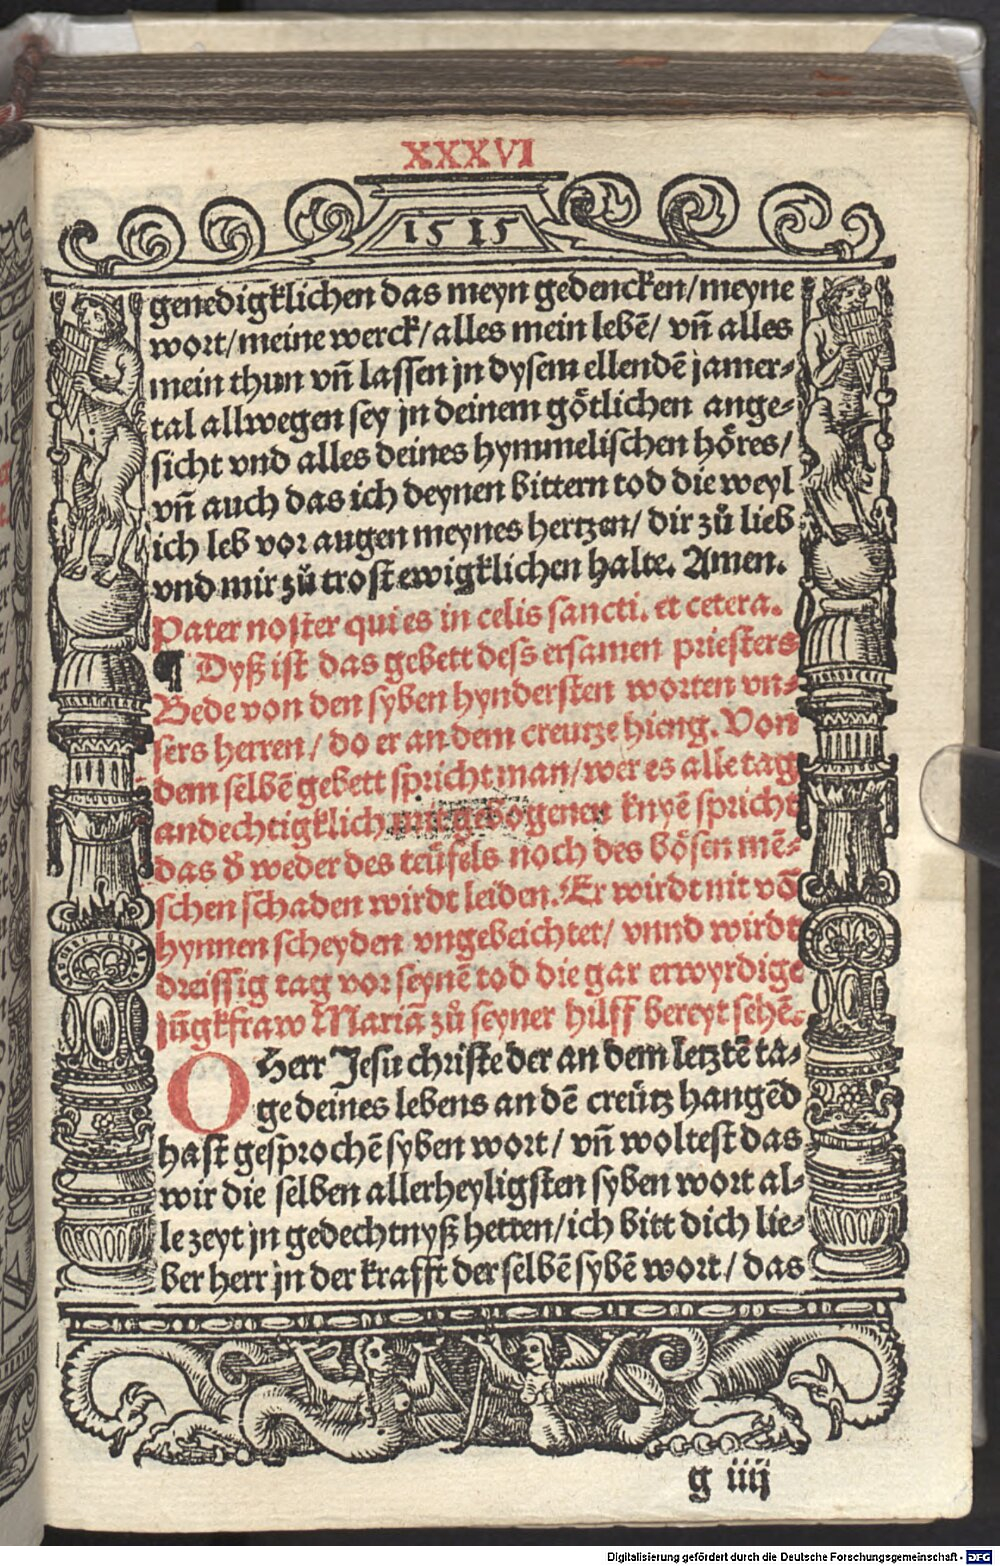 XXXVI
1515
genedigklichen das meyn gedencken/meyne
wort/meine werck/alles mein lebē/ vñ alles
mein thun vñ lassen jn dysem ellendē jamer-
tal allwegen sey jn deinem götlichen ange-
sicht vnd alles deines hymmelischen höres/
vñ auch das ich deynen bittern tod die weyl
ich leb vor augen meynes hertzen/ dir zů lieb
vnd mir zů trost ewigklichen halte. Amen.
Pater noster qui es in celis sancti. et cetera.
¶ Dyß ist das gebett dess ersamen priesters
Bede von den syben hyndersten worten vn-
sers herren/ do er an dem creutze hieng. Von
dem selbē gebett spricht man/wer es alle tag
andechtigklich mit gebogenen knyē spricht
das d̄ weder des teüfels noch des bösen mē-
schen schaden wirdt leiden. Er wirdt nit vō
hynnen scheyden vngebeichtet/ vnnd wirdt
dreissig tag vor seynē tod die gar erwyrdige
jūgkfraw Mariā zů seyner hilff bereyt sehē.
O Herr Jesu christe der an dem letztē ta-
ge deines lebens an dē creütz hangēd
hast gesprochē syben wort/ vñ woltest das
wir die selben allerheyligsten syben wort al-
le zeyt jn gedechtnyß hetten/ich bitt dich lie-
ber herr jn der krafft der selbē sybē wort/ das
g iiij
Digitalisierung gefördert durch die Deutsche Forschungsgemeinschaft - DFG